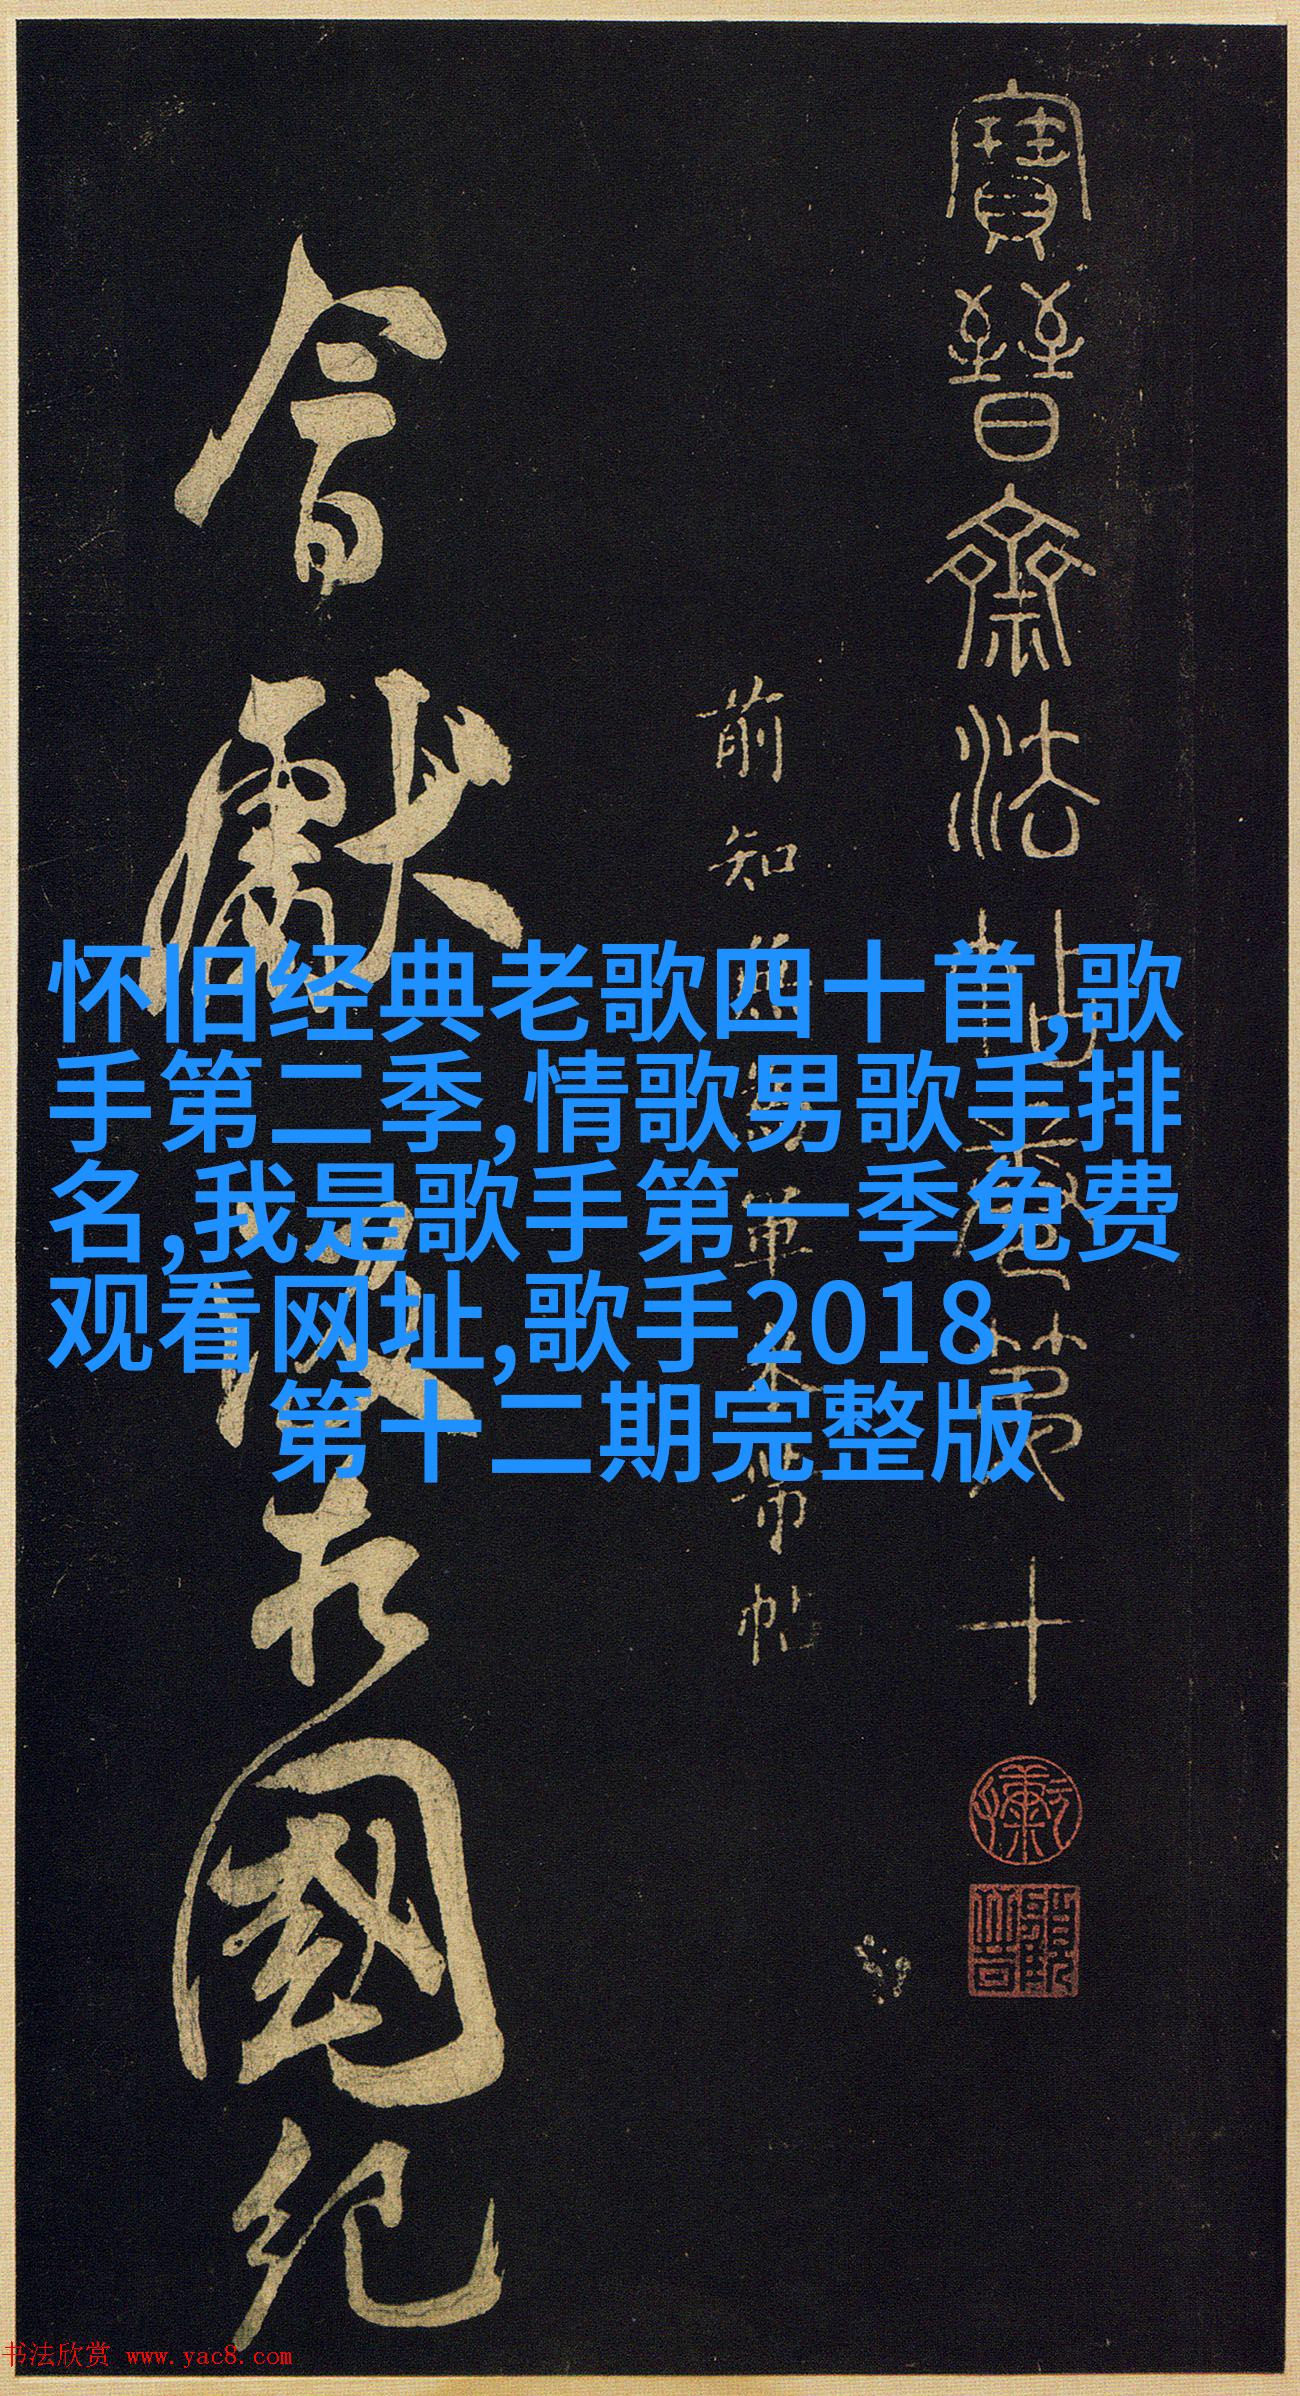 寶晉齋法帖卷第十
前知無爲軍米芾帖
怀旧经典老歌四十首,歌
手第二季,情歌男歌手排
名,我是歌手第一季免费
观看网址,歌手2018
第十二期完整版
國紀
书法欣赏 www.yac8.com